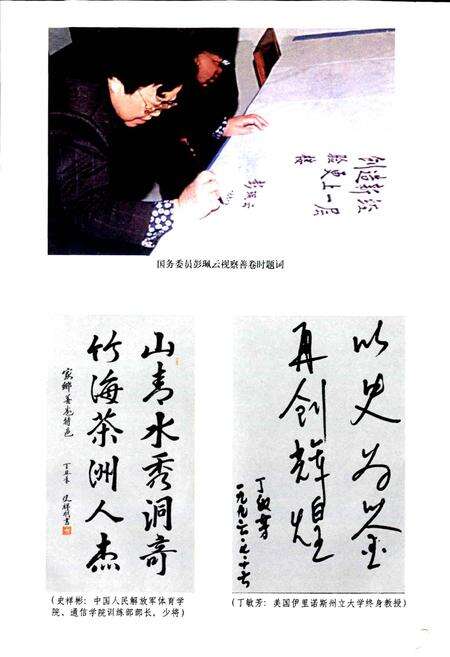 创造新经
验更上一层
楼
彭珮云
国务委员彭珮云视察善卷时题词
山青水秀洞奇
竹海茶洲人杰
家乡善卷特色
丁丑春 史祥彬书
(史祥彬：中国人民解放军体育学
院、通信学院训练部部长，少将)
以史为鉴
再创辉煌
丁敏芳
一九九六·九·十六
(丁敏芳：美国伊里诺斯州立大学终身教授)